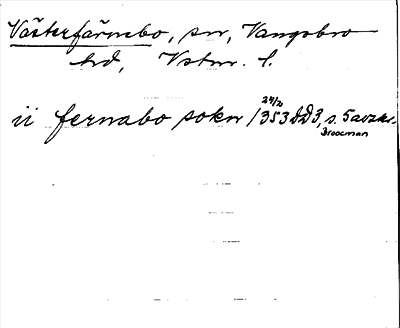 Västerfärnebo, sn, Vangsbro
hd, Vstm. l.
ii fernabo sokn 24/2 1353 DD3, s.
Broocman